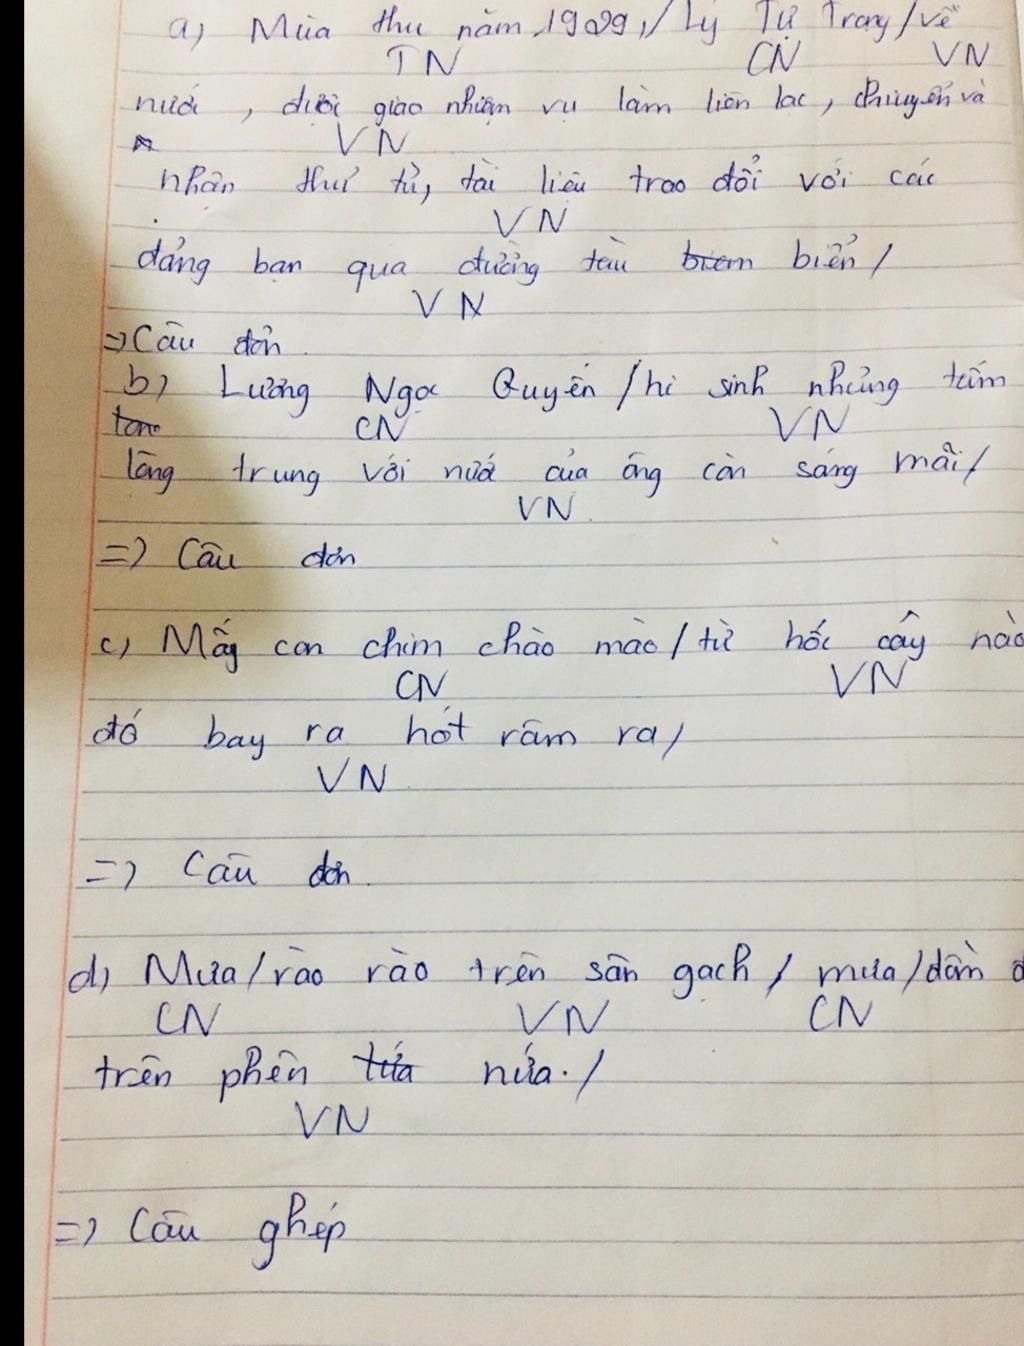 a) Mùa thu năm 1929,/ Lý Tự Trọng / về
TN CN VN
nước, được giao nhiệm vụ làm liên lạc, chuyển và
VN
nhận thư từ, tài liệu trao đổi với các
VN
đảng bạn qua đường tàu biển /
VN
=> Câu đơn
b) Lương Ngọc Quyến / hi sinh nhưng tấm
CN VN
lòng trung với nước của ông còn sáng mãi /
VN
=> Câu đơn
c) Mấy con chim chào mào / từ hốc cây nào
CN VN
đó bay ra hót râm ra /
VN
=> Câu đơn
d) Mưa / rào rào trên sân gạch / mưa / đồm đ
CN VN CN
trên phên nứa. /
VN
=> Câu ghép